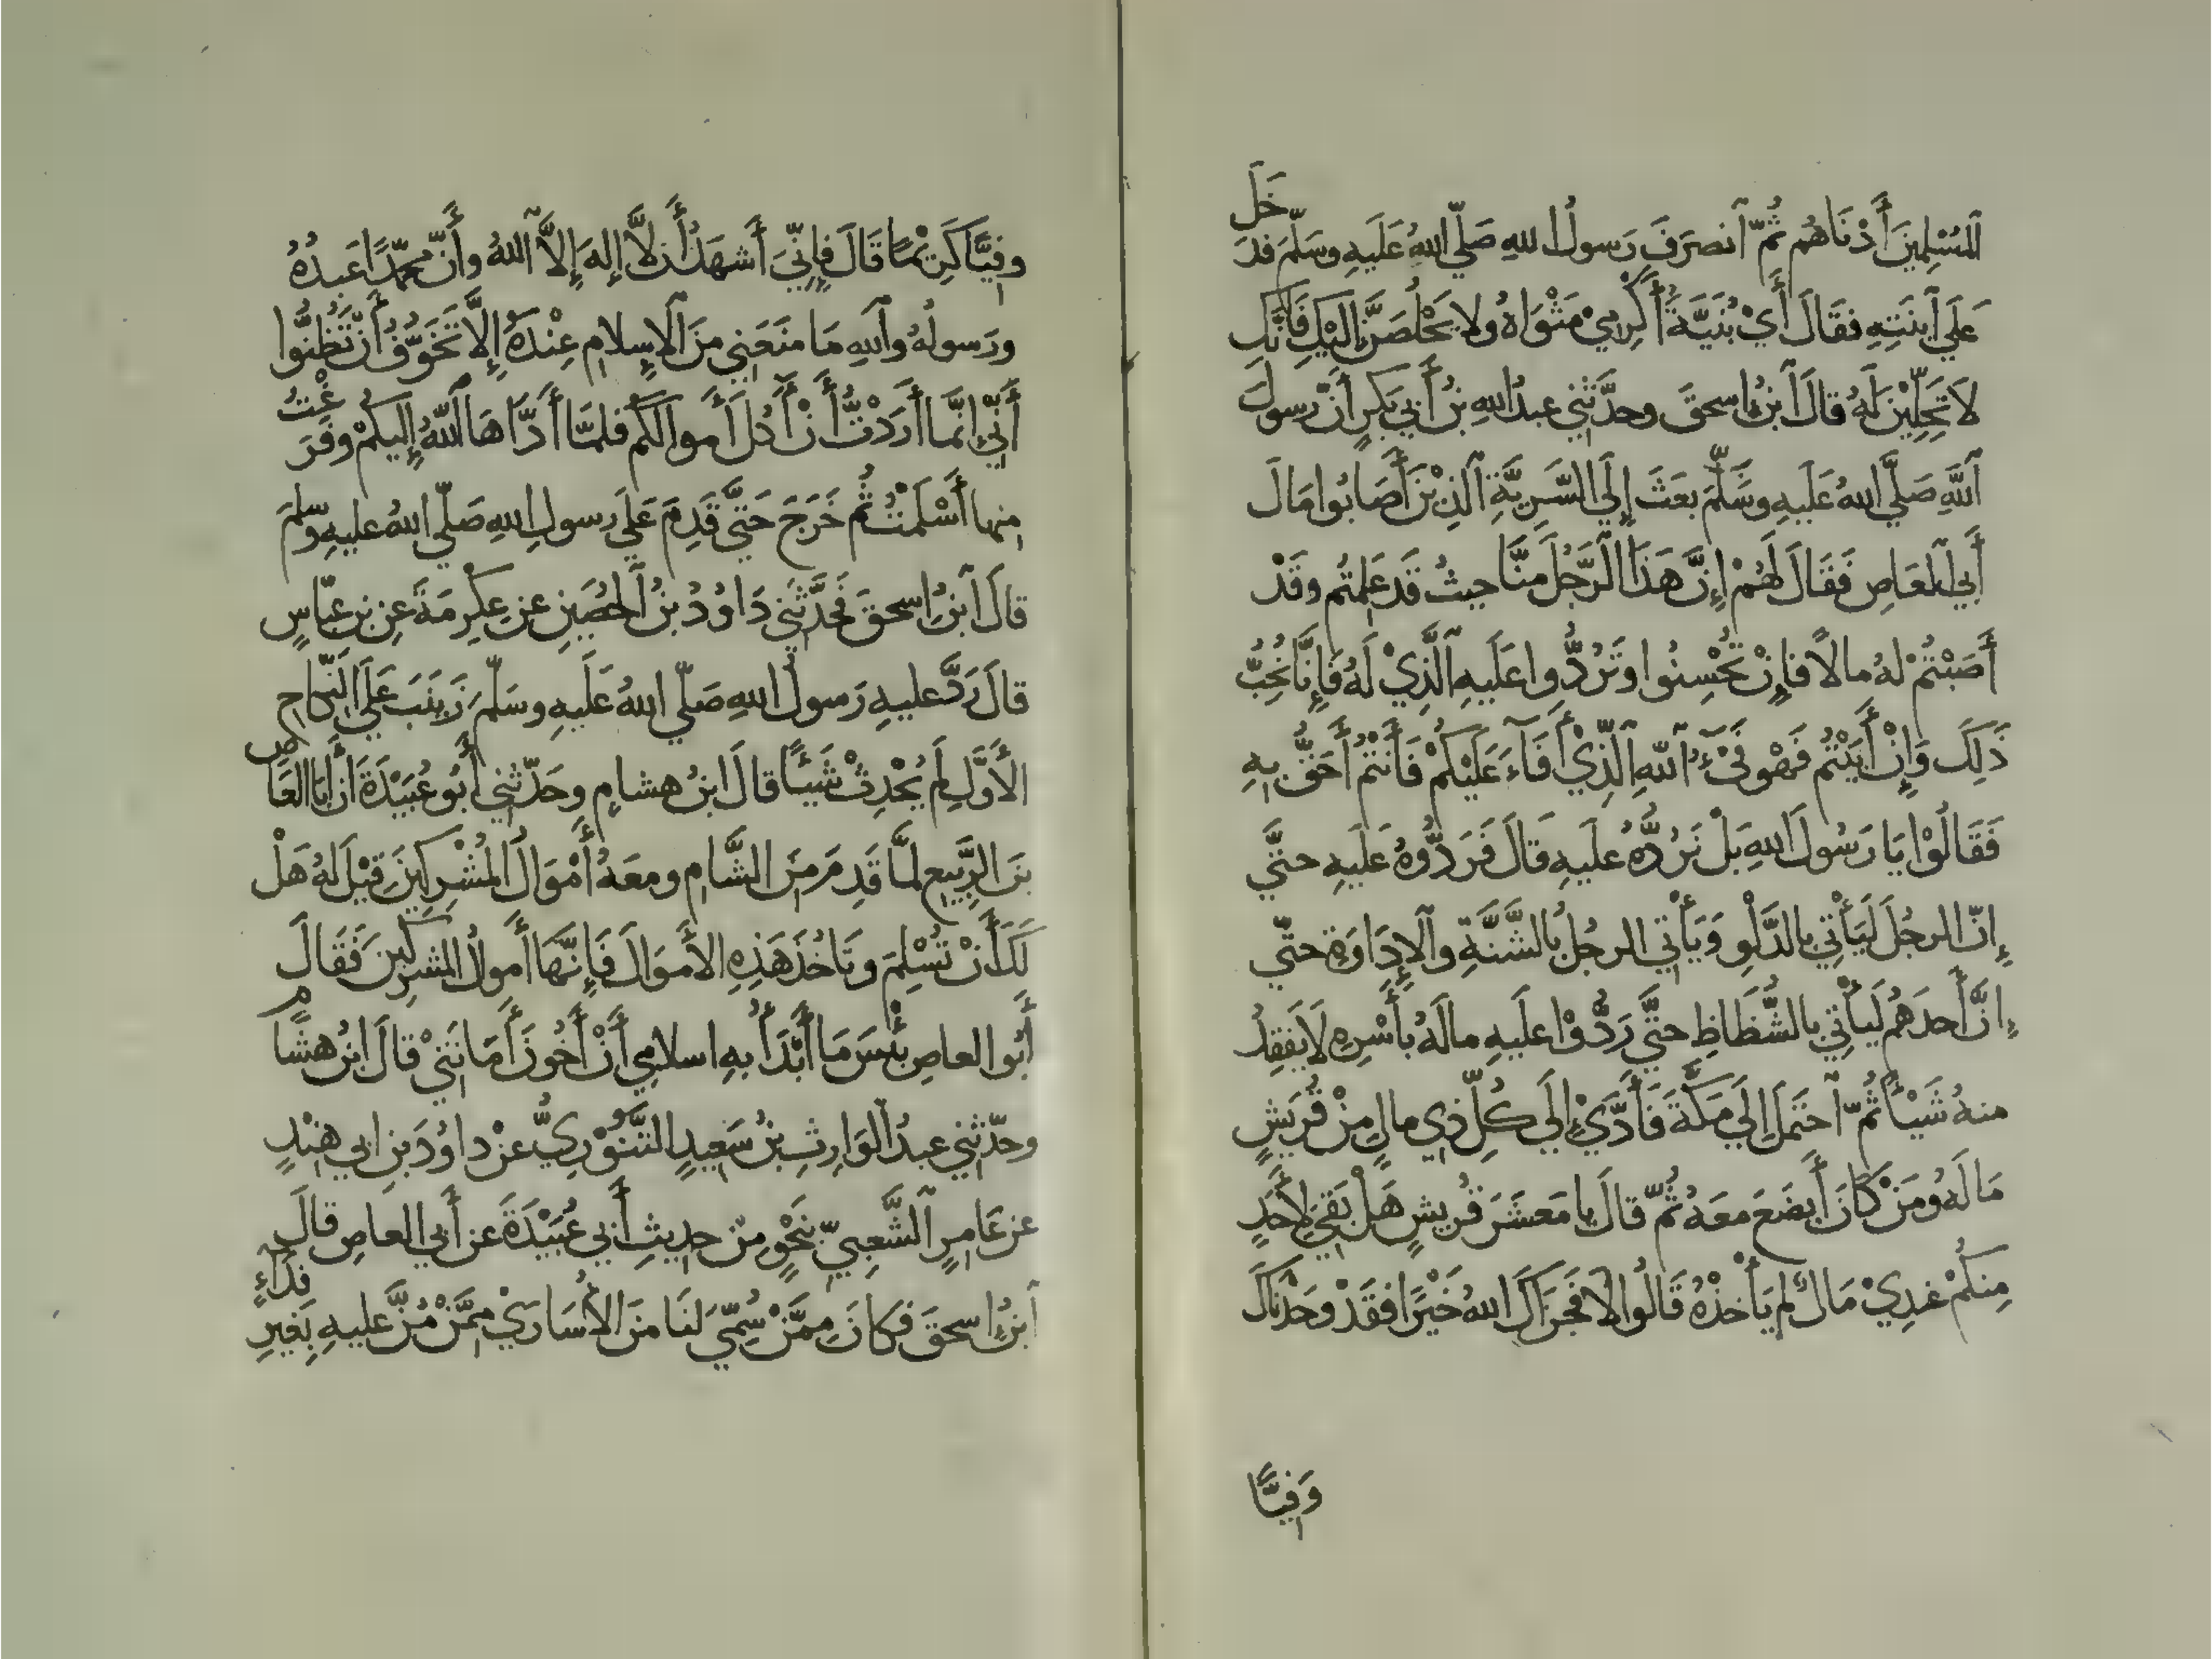 المُسْلِمِينَ أَدْنَاهُم ثُمَّ ٱنصَرَفَ رَسولُ اللهِ صَلّي اللهُ عَلَيهِ وسَلَّمَ فدَخَلَ
عَلَي ٱبنَتِهِ فقَالَ أَيْ بُنَيَّةُ أَكْرِمِيْ مَثْوَاهُ ولا يَخْلُصَنَّ إِلَيْكِ فَإِنَّكِ
لاَ تَحِلِّيْنَ لَهُ قالَ ٱبنُ إِسحقَ وحدَّثَنِي عبدُ اللهِ بنُ أَبِي بَكرٍ أَنَّ رسولَ
ٱللَّهِ صَلَّي اللهُ عَلَيهِ وسَلَّمَ بعَثَ إِلَي السَّرِيَّةِ ٱلذِيْنَ أَصَابُوا مَالَ
أَبِي العَاصِ فَقَالَ لَهُمْ إِنَّ هَذَا ٱلرَّجُلَ مِنَّا حيثُ قَد عَلِمتُم وقَدْ
أَصَبْتُمْ لهُ مالاً فإِنْ تُحْسِنُوا وتَرُدُّوا عَلَيهِ ٱلَّذِيْ لَهُ فَإِنَّا نُحِبُّ
ذَلِكَ وَإِنْ أَبَيْتُم فَهْوَ فَيْءُ ٱللهِ ٱلَّذِيْ أَفَآءَ عَلَيْكُمْ فَأَنْتُمْ أَحَقُّ بهِ
فَقَالُوْا يَا رَسُولَ اللهِ بَلْ نَرُدُّهُ علَيهِ قَالَ فَرَدُّوهُ عَلَيهِ حتَّي
إِنّ الرجُلَ لَيَأْتِي بالدَّلْوِ وَيَأْتِي الرجُلُ بالشَّنَّةِ وٱلإِدَاوَةِ حتّي
إِنَّ أَحدَهُم لَيَأْتِي بالشِّظَاظِ حتَّي رَدُّوْا علَيهِ مالَهُ بأَسْرِهِ لاَ يَفقِدُ
منهُ شَيْئاً ثُمّ ٱحتَمَلَ إِلَي مَكَّةَ فَأَدَّيْ إِلَي كُلِّ ذِي مالٍ مِنْ قُرَيشٍ
مَالَهُ ومَنْ كَانَ أَبضَعَ معَهُ ثُمّ قالَ يا مَعشَرَ قُريشٍ هَلْ بَقِيَ لأَحَدٍ
مِنكُمْ عِندِيْ مَالٌ لم يَأْخذْهُ قَالُوا لاَ فَجَزَاكَ اللهُ خَيْرًا فقَدْ وجَدْنَاكَ
وَفِيًّا
وفِيًّا كَرِيْمًا قَالَ فإِنِّيَ أَشهَدُ أَن لاَّ إِلهَ إِلاَّ ٱللهُ وأَنّ محمّدًا عَبدُهُ
ورَسولُهُ وٱللهِ مَا منَعَنِي منَ ٱلإسلامِ عِنْدَهُ إِلاَّ تَخَوُّفُ أَنْ تَظُنُّوا
أَنِّي إِنَّما أَرَدْتُّ أَنْ أَٰكُلَ أَموالَكُم فلمَّا أَدَّاهَا ٱللهُ إِليكُمْ وفَرَغْتُ
منها أَسْلَمْتُ ثُم خَرَجَ حَتَّي قَدِمَ عَلَي رسولِ اللهِ صَلّي اللهُ عليهِ وسلمَ
قالَ ٱبنُ إِسحقَ فحَدَّثَنِي دَاوُدُ بنُ ٱلحُصَينِ عنِ عِكرِمَةَ عنِ بنِ عبّاسٍ
قالَ رَدَّ عليهِ رَسولُ اللهِ صَلّي اللهُ عَلَيهِ وسَلّمَ زَينَبَ عَلَي النّكَاحِ
الأَوَّلِ لَم يُحْدِثْ شَيئًا قالَ ابنُ هشامٍ وحَدّثَنِي أَبُو عُبَيْدَةَ أَنّ أَبا العَاصِ
بنَ الرَّبِيعِ لمَّا قَدِمَ مِنَ الشَّامِ ومعَهُ أَمْوَالُ المُشْرِكِينَ قِيْلَ لهُ هَلْ
لَكَ أَنْ تُسْلِمَ وتَاخُذَ هَذِهِ الأَموَالَ فَإِنَّهَا أَموالُ المُشرِكينَ فَقَالَ
أَبُوا العاصِ بئْسَ مَا أَبْدَأُ بهِ اسلامِي أَنْ أَخُونَ أَمَانَتِيْ قالَ ابنُ هشَامٍ
وحدّثنِي عبدُ ٱلوَارِثِ بنُ سَعِيدٍ التَّنُّوْرِيُّ عنْ داوُدَ بنِ ابِي هِنْدٍ
عن عَامِرٍ ٱلشَّعبِيِّ بنَحْوٍ مِنْ حديثِ أَبي عُبَيْدَةَ عن أَبي العاصِ قالَ
ٱبنُ إِسحقَ فكانَ مِمَّنْ سُمِّيَ لنَا منَ الأُسَارَيْ مِمَّنْ مُنَّ عليهِ بِغَيرِ فِدَآءٍ